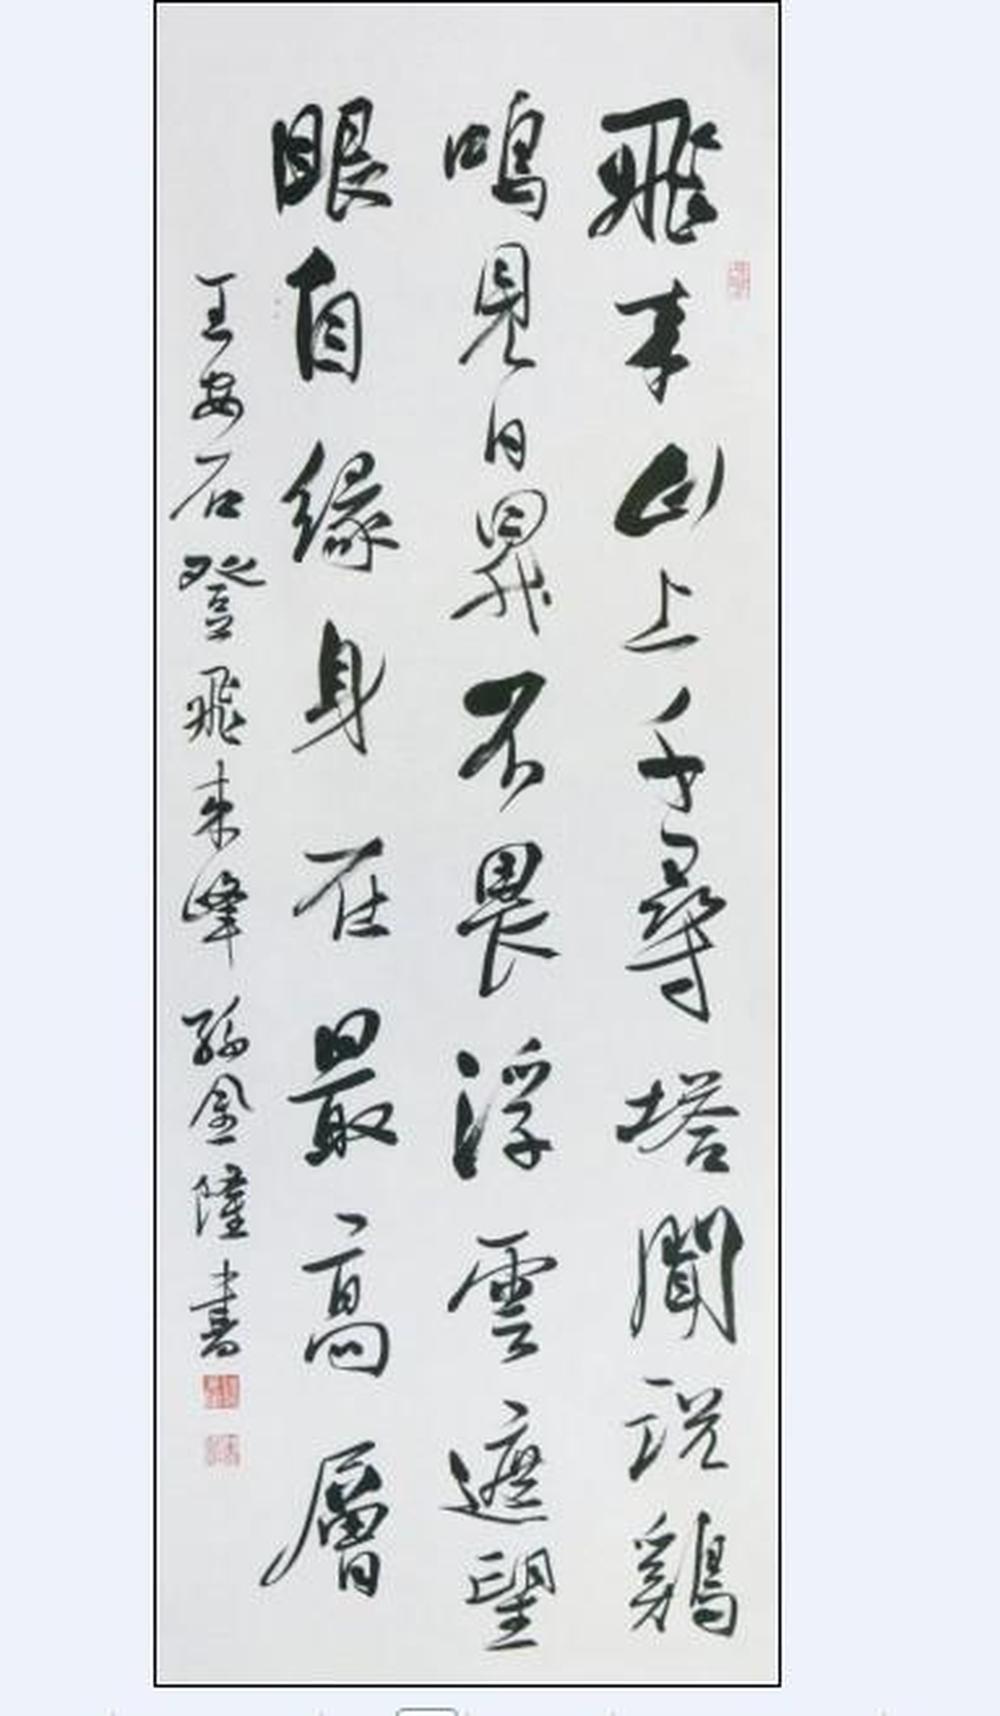 飛来山上千尋塔聞説鷄
鳴見日昇不畏浮雲遮望
眼自緣身在最高層
王安石登飛来峰 孫金隆書